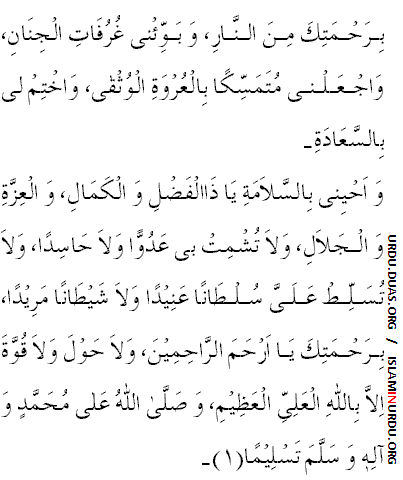 بِرَحْمَتِكَ مِنَ النَّارِ، وَ بَوِّئْنی غُرُفَاتِ الْجِنَانِ،
وَاجْعَلْنی مُتَمَسِّکًا بِالْعُرْوَةِ الْوُثْقٰی، وَاخْتِمْ لی
بِالسَّعَادَةِ۔
وَ اَحْیِنِی بِالسَّلاَمَةِ یَا ذَاالْفَضْلِ وَ الْکَمَالِ، وَ الْعِزَّةِ
وَ الْجَلاَلِ، وَلاَ تُشْمِتْ بی عَدُوًّا وَلاَ حَاسِدًا، وَلاَ
تُسَلِّطْ عَلَیَّ سُلْطَانًا عَنِیْدًا وَلاَ شَیْطَانًا مَرِیْدًا،
بِرَحْمَتِكَ یَا اَرْحَمَ الرَّاحِمِیْنَ، وَلاَ حَوْلَ وَلاَ قُوَّةَ
اِلاَّ بِاللهِ الْعَلِیِّ الْعَظِیْمِ، وَ صَلَّیٰ اللهُ عَلی مُحَمَّدٍ وَ
آلِهٖ وَ سَلَّمَ تَسْلِیْمًا(۱)۔
URDU.DUAS.ORG / ISLAMINURDU.ORG